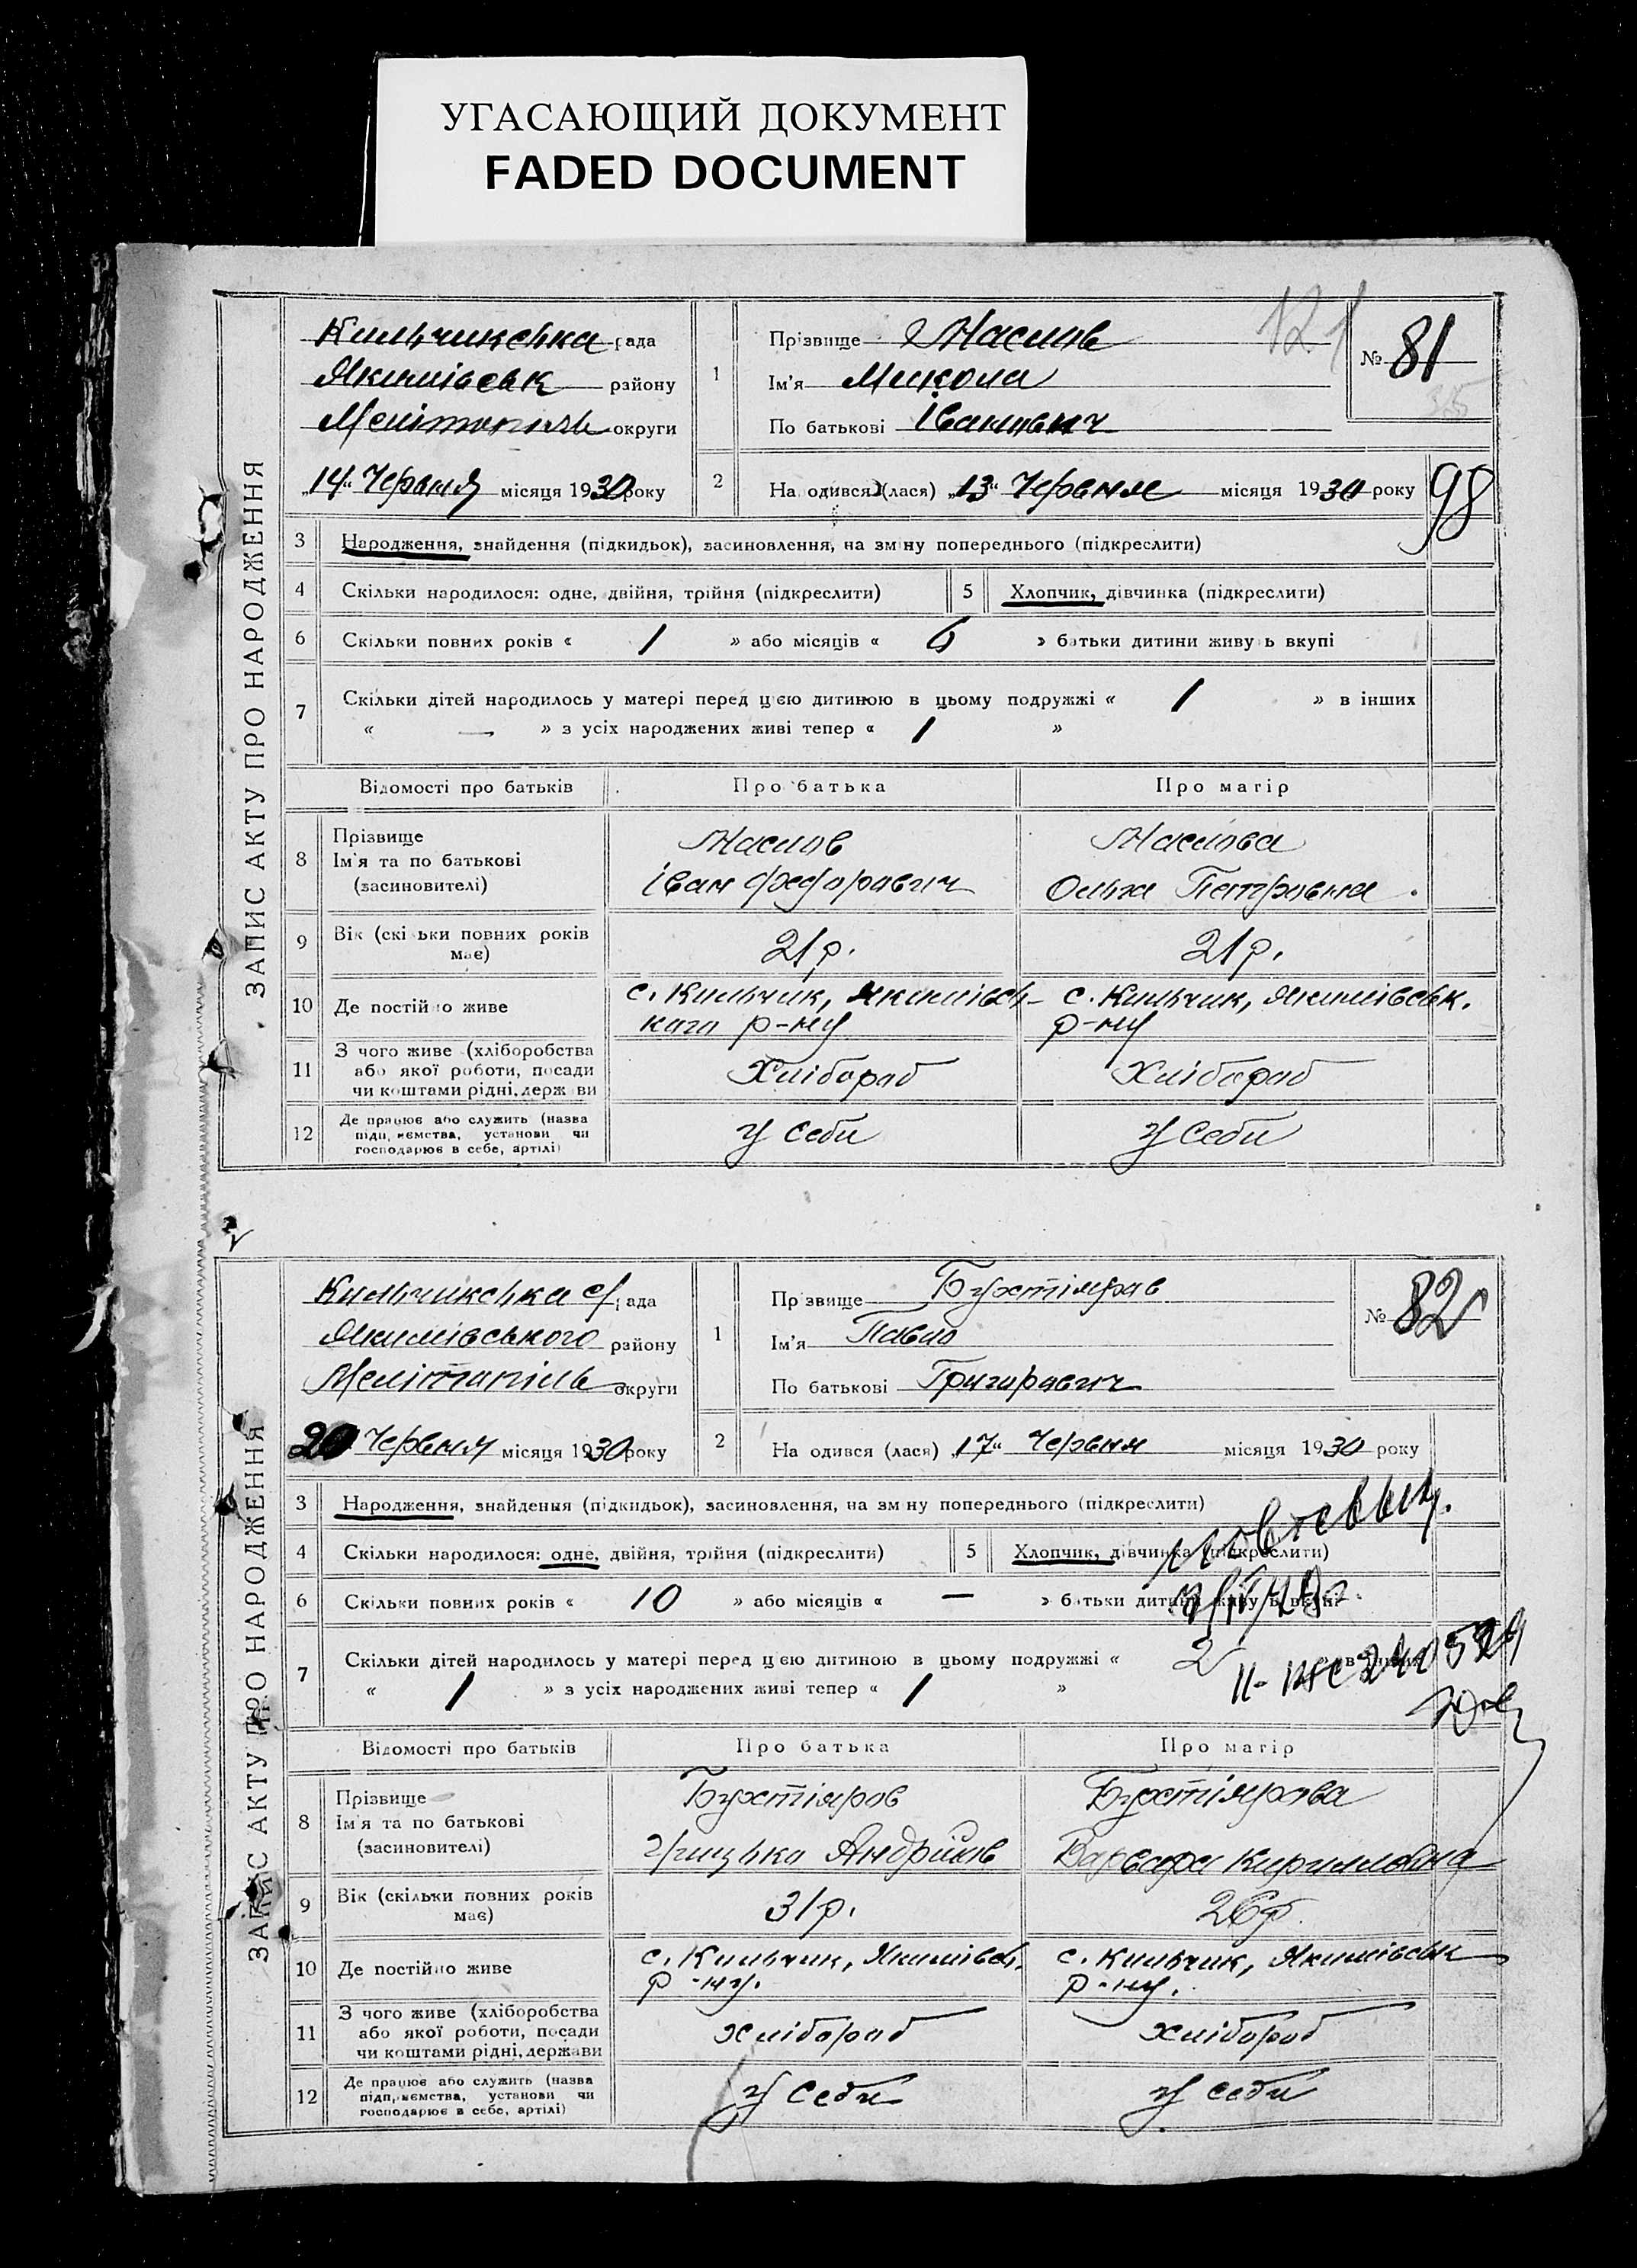 УГАСАЮЩИЙ ДОКУМЕНТ
FADED DOCUMENT
ЗАПИС АКТУ ПРО НАРОДЖЕННЯ
Кильчикська рада
Якимівськ району
Мелітополь округи
„14“ Червня місяця 1930 року
1
Прізвище Маслов
Ім'я Микола
По батькові Іванович
121
№ 81
35
2
На одився (лася) „13“ Червня місяця 1930 року
98
3 Народження, знайдення (підкидьок), засиновлення, на зміну попереднього (підкреслити)
4 Скільки народилося: одне, двійня, трійня (підкреслити) 5 Хлопчик, дівчинка (підкреслити)
6 Скільки повних років « 1 » або місяців « 6 » батьки дитини живу ь вкупі
7 Скільки дітей народилось у матері перед цією дитиною в цьому подружжі « 1 » в інших
« — » з усіх народжених живі тепер « 1 »
Відомості про батьків Про батька Про матір
8 Прізвище
Ім'я та по батькові
(засиновителі)
Маслов
Іван Федорович
Маслова
Ольга Петровна
9 Вік (скі ьки повних років має) 21 р. 21 р.
10 Де постійно живе
с. Кильчик, Якимівсь-
кого р-ну
с. Кильчик, Якимівськ.
р-ну
11 З чого живе (хліборобства
або якої роботи, посади
чи коштами рідні, держ ви
Хлібороб Хлібороб
12 Де працює або служить (назва
підп, иємства, установи чи
господарює в себе, артілі)
У себи У себи
ЗАПИС АКТУ ПРО НАРОДЖЕННЯ
Кильчикська с/рада
Якимівського району
Мелітопіль округи
20 Червня місяця 1930 року
1
Пр звище Бухтіяров
Ім'я Павло
По батькові Григорович
№ 82
2
На одився (лася) „17“ Червня місяця 1930 року
3 Народження, знайдення (підкидьок), засиновлення, на зм ну попереднього (підкреслити)
4 Скільки народилося: одне, двійня, трійня (підкреслити) 5 Хлопчик, дівчинка (підкреслити)
6 Скільки повних років « 10 » або місяців « — » батьки дитини живу ь вкупі
7 Скільки дітей народилось у матері перед цією дитиною в цьому подружжі « 2 » в інших
« 1 » з усіх народжених живі тепер « 1 »
Відомості про батьків Про батька Про матір
8 Прізвище
Ім'я та по батькові
(засиновителі)
Бухтіяров
Грицько Андріїов
Бухтіярова
Варвара Кирилловна
9 Вік (скільки повних років має) 31 р. 26 р.
10 Де постійно живе
с. Кильчик, Якимівсь.
р-ну.
с. Кильчик, Якимівськ
р-ну.
11 З чого живе (хліборобства
або якої роботи, посади
чи коштами рідні, держави
хлібороб хлібороб
12 Де працює або служить (назва
підп, иємства, установи чи
господарює в себе, артілі)
У себи У себи